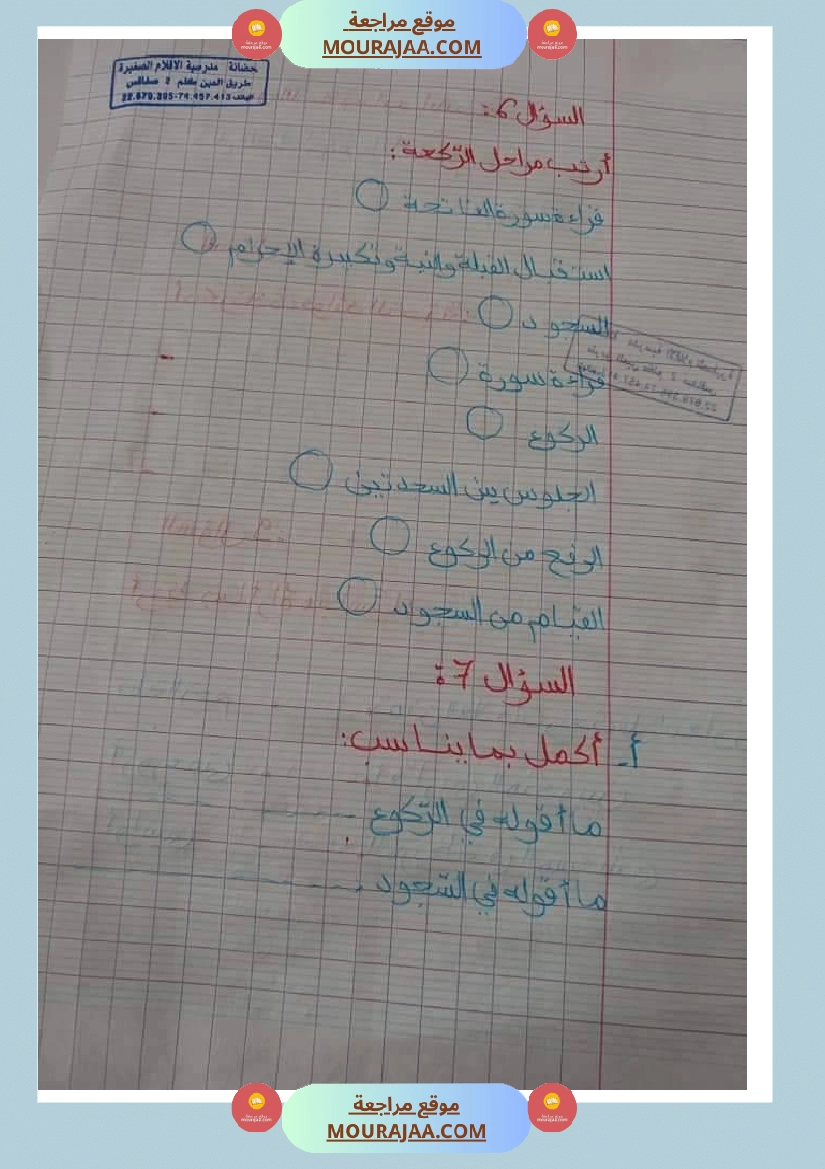 موقع مراجعة
MOURAJAA.COM
حضانة مدرسية الاقلام الصغيرة
طريق العين كلم 2 صفاقس
السؤال 6:
أرتب مراحل الرّكعة:
قراءة سورة الفاتحة
استقبال القبلة والنية وتكبيرة الإحرام
السجود
قراءة سورة
الركوع
الجلوس بين السجدتين
الرفع من الركوع
القيام من السجود
السؤال 7:
أ- أكمل بما يناسب:
ما أقوله في الرّكوع
ما أقوله في السّجود
موقع مراجعة
MOURAJAA.COM